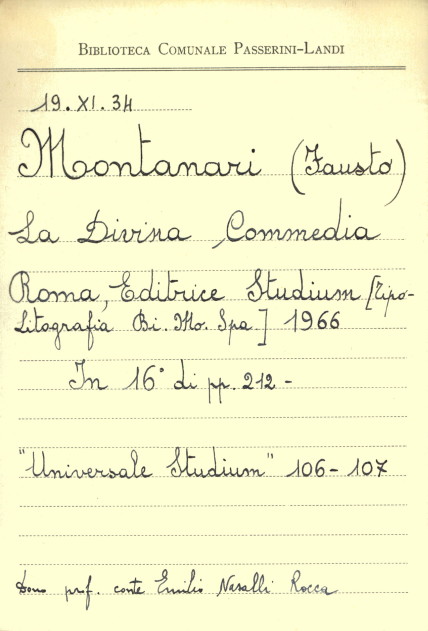 BIBLIOTECA COMUNALE PASSERINI-LANDI
19.XI.34
Montanari (Fausto)
La Divina Commedia
Roma, Editrice Studium [Tipo-
Litografia Bi. Mo. Spa.] 1966
In 16° di pp. 212 -
"Universale Studium" 106 - 107
Dono prof. conte Emilio Nasalli Rocca